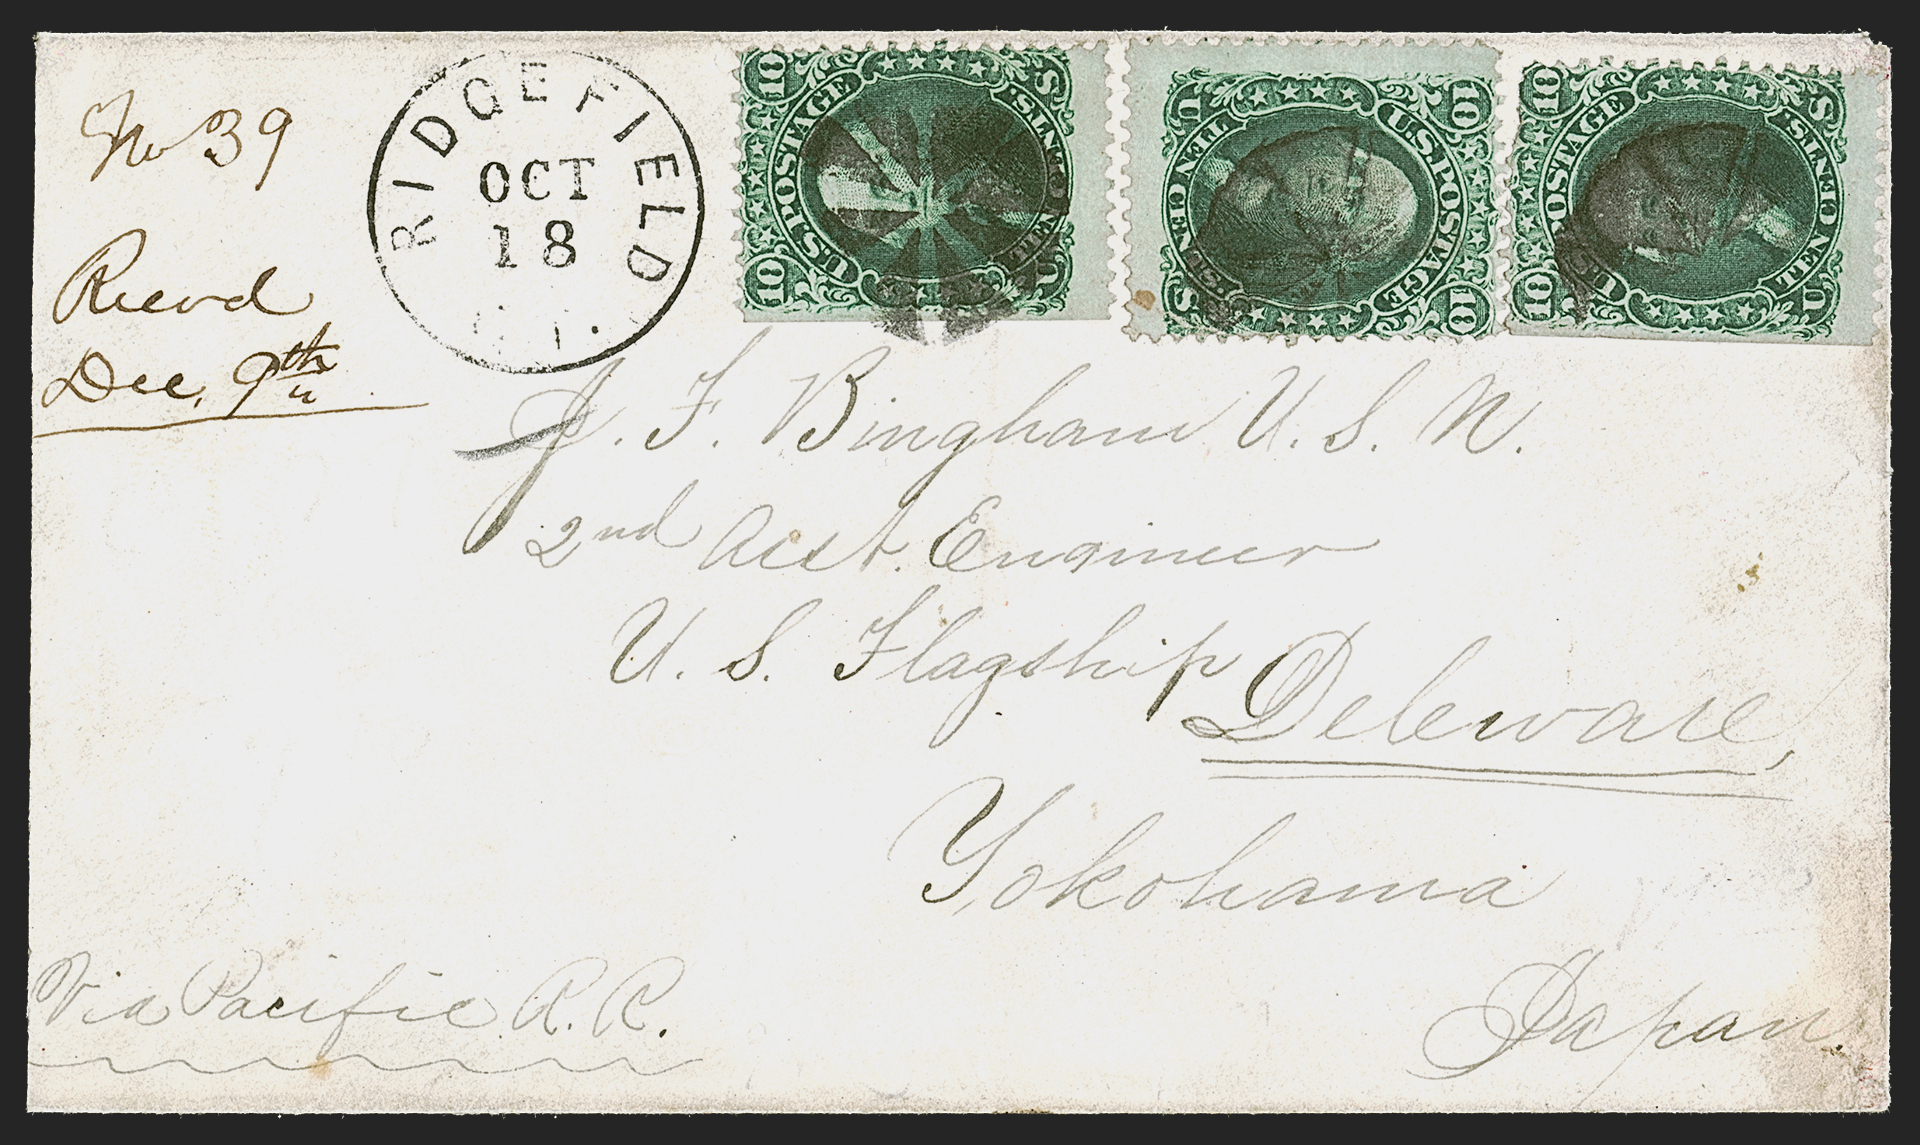 No 39
Recvd
Dec. 9th
RIDGEFIELD
OCT
18
10 U.S. POSTAGE 10
TEN CENTS.
U S
10 U.S. POSTAGE 10
TEN CENTS.
U S
10 U.S. POSTAGE 10
TEN CENTS.
U S
J. F. Bingham U. S. N.
2nd Asst. Engineer
U. S. Flagship Deleware,
Yokohama
Japan.
Via Pacific R. R.